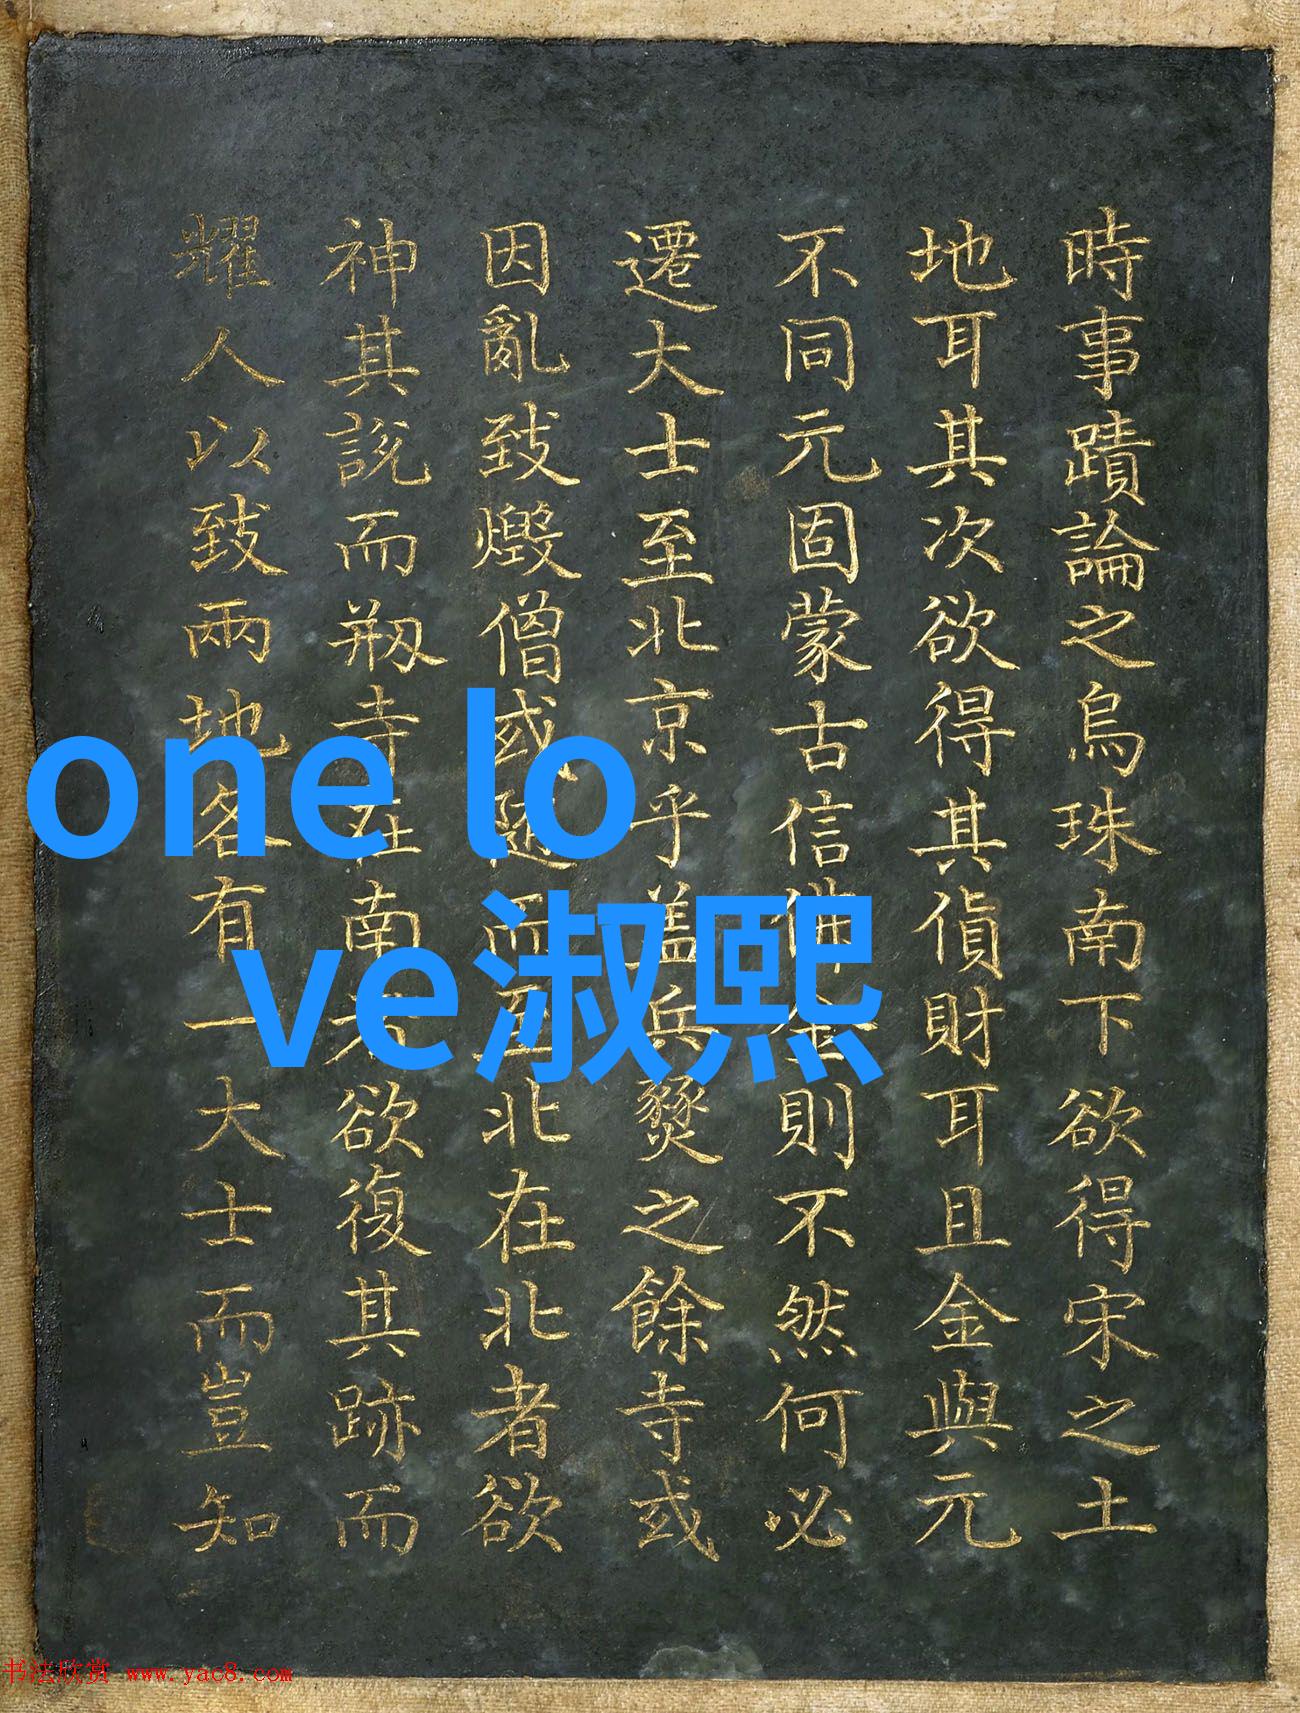 時事蹟論之烏珠南下欲得宋之土
地耳其次欲得其貨財耳且金與元
不同元固蒙古信佛金則不然何必
遷大士至北京乎盖兵燹之餘寺或
因亂致燬僧或随而至北在北者欲
神其說而剏寺在南者欲復其跡而
耀人以致兩地各有一大士而豈知
one lo
ve淑熙
书法欣赏 www.yac8.com